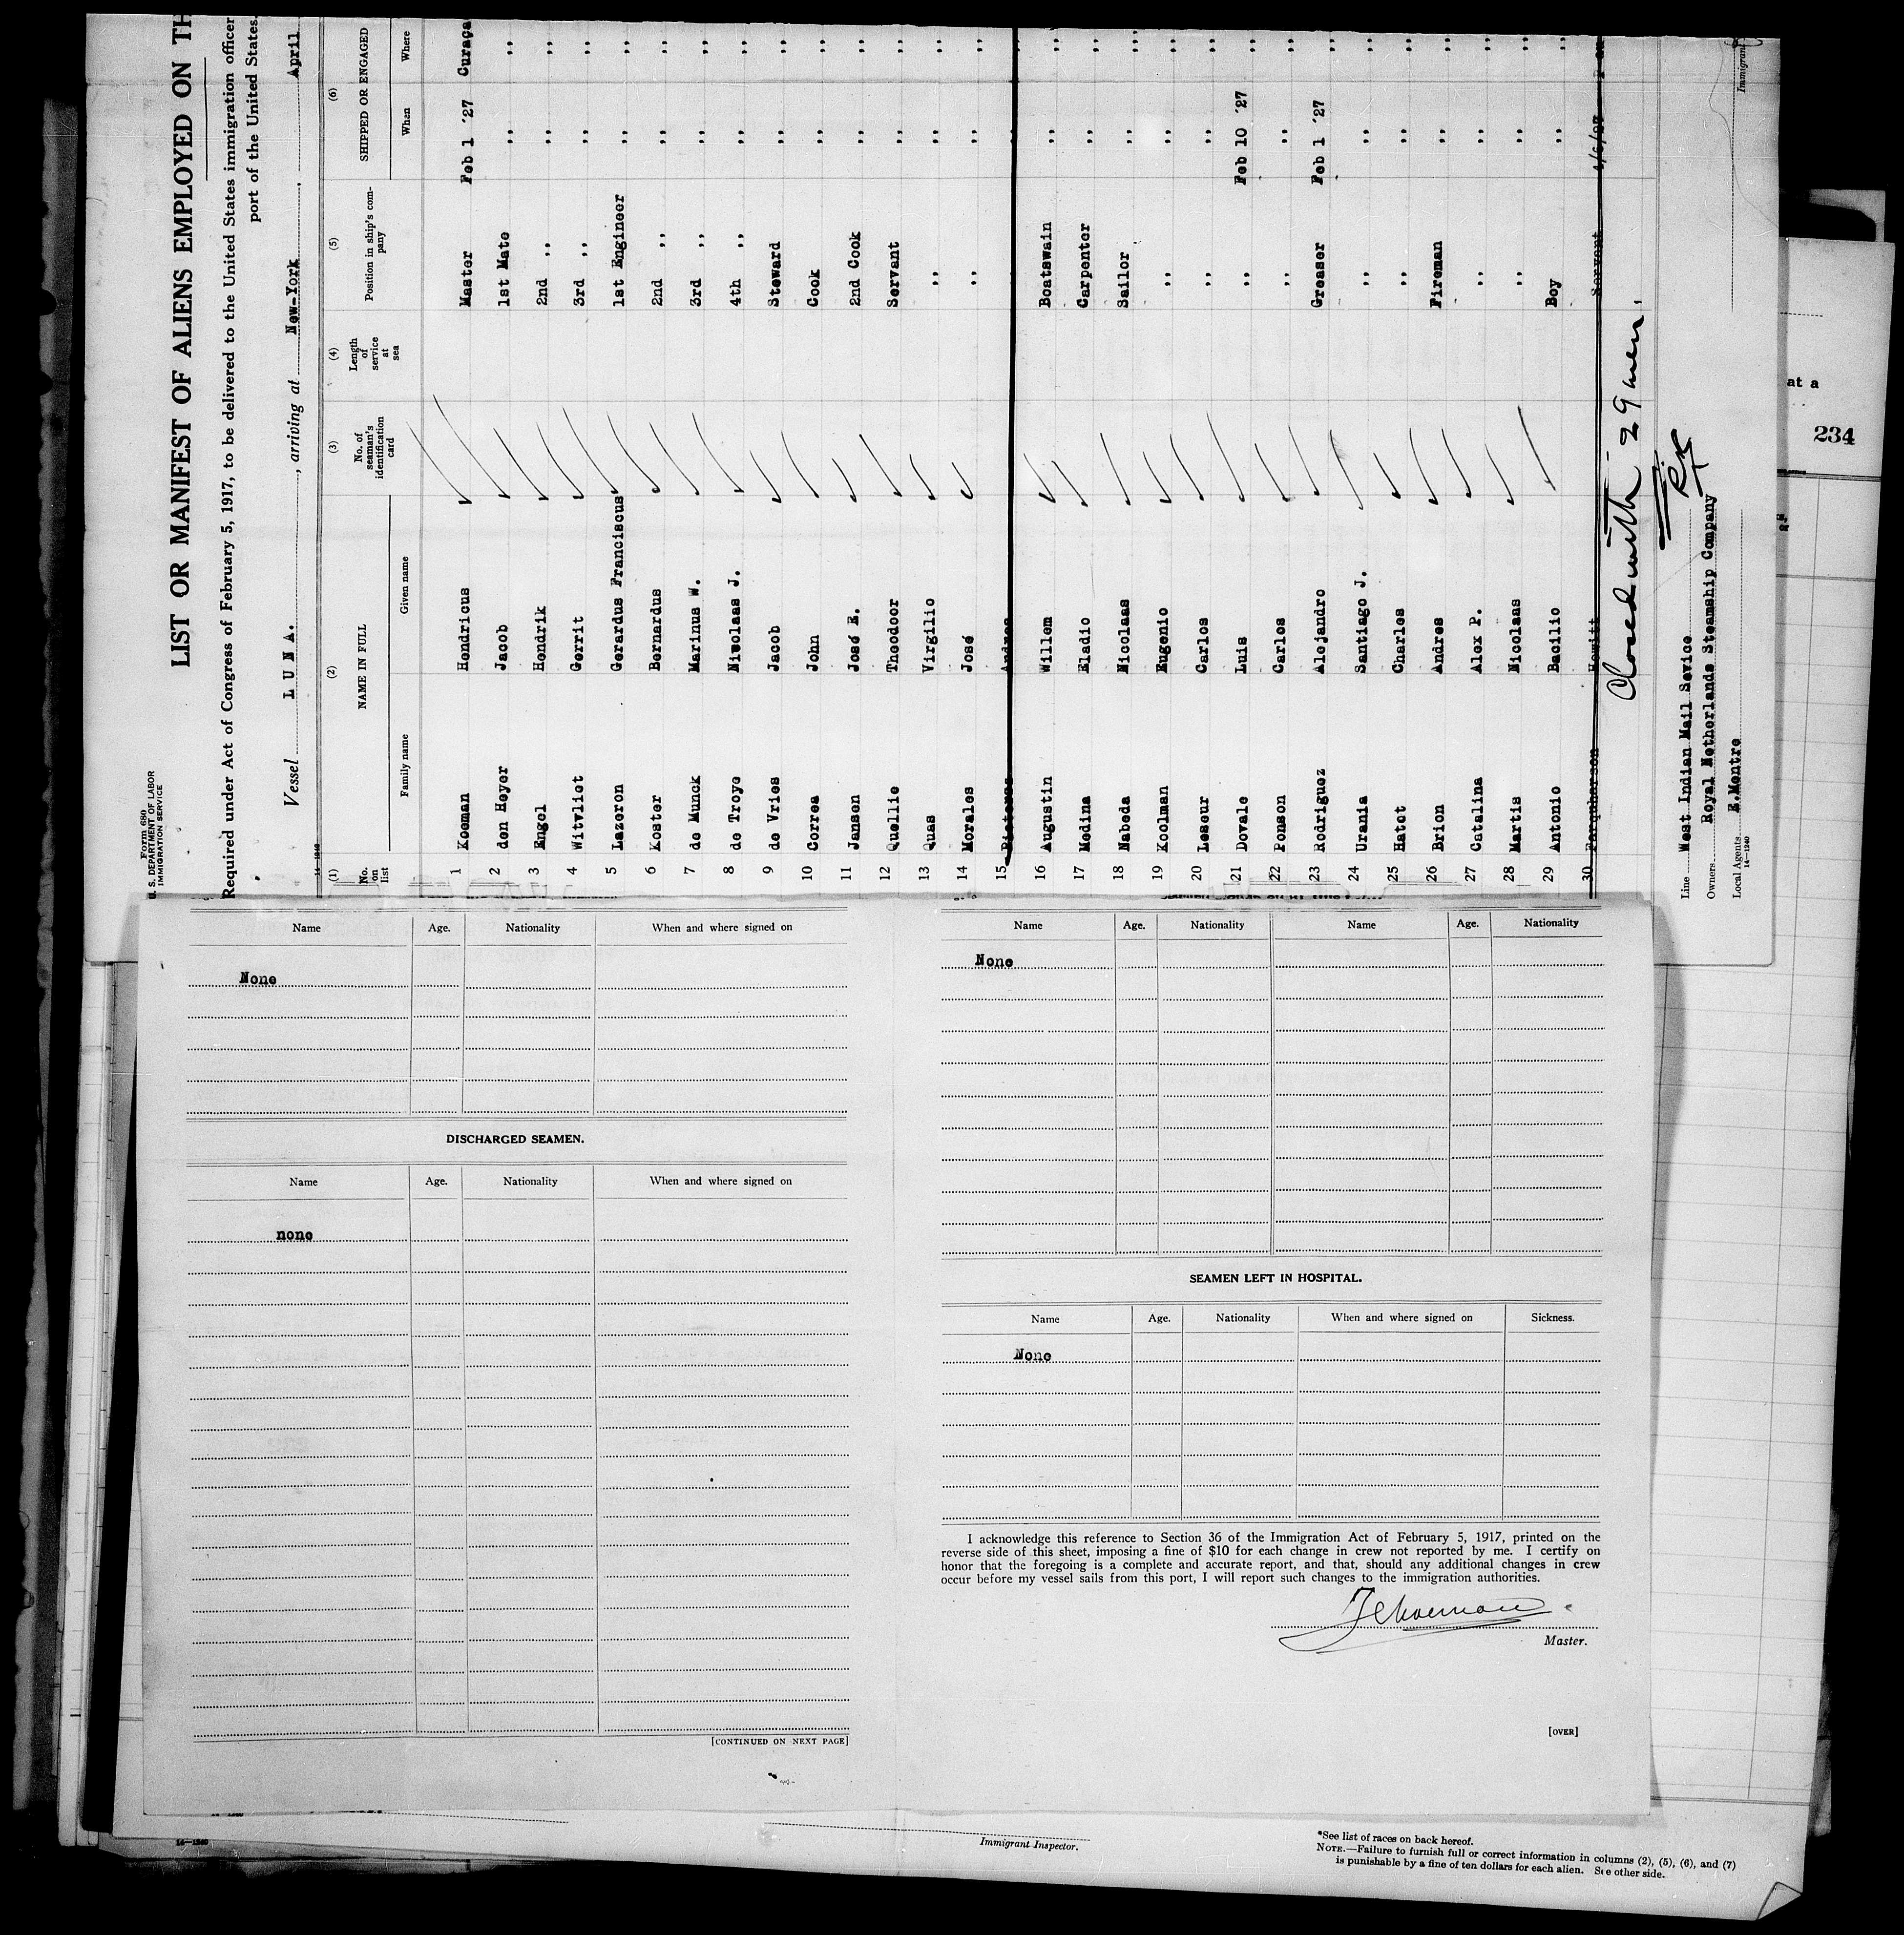 Form 680
U. S. DEPARTMENT OF LABOR
IMMIGRATION SERVICE
LIST OR MANIFEST OF ALIENS EMPLOYED ON TH
Required under Act of Congress of February 5, 1917, to be delivered to the United States immigration officer
port of the United States.
Vessel L U N A. , arriving at New-York , April
14—1240
(1) (2) (3) (4) (5) (6)
No. on list NAME IN FULL No. of seaman's identification card Length of service at sea Position in ship's company SHIPPED OR ENGAGED
Family name Given name When Where
1 Koeman Hendricus Master Feb 1 '27 Curaça
2 den Heyer Jacob 1st Mate ,, ,,
3 Engel Hendrik 2nd ,, ,, ,,
4 Witvliet Gerrit 3rd ,, ,, ,,
5 Lazeron Gerardus Franciscus 1st Engineer ,, ,,
6 Koster Bernardus 2nd ,, ,, ,,
7 de Munck Marinus W. 3rd ,, ,, ,,
8 de Troye Nicolaas J. 4th ,, ,, ,,
9 de Vries Jacob Steward ,, ,,
10 Correa John Cook ,, ,,
11 Jansen José E. 2nd Cook ,, ,,
12 Quellie Theodoor Servant ,, ,,
13 Quas Virgilio ,, ,, ,,
14 Morales José ,, ,, ,,
15
16 Augustin Willem Boatswain ,, ,,
17 Medina Eladio Carpenter ,, ,,
18 Nabeda Nicolaas Sailor ,, ,,
19 Koolman Eugenio ,, ,, ,,
20 Leseur Carlos ,, ,, ,,
21 Dovale Luis ,, Feb 10 '27 ,,
22 Ponson Carlos ,, ,, ,,
23 Rodriguez Alejandro Greaser Feb 1 '27 ,,
24 Urania Santiago J. ,, ,, ,,
25 Hatot Charles ,, ,, ,,
26 Brion Andres Fireman ,, ,,
27 Catalina Alex P. ,, ,, ,,
28 Martis Nicolaas ,, ,, ,,
29 Antonio Bacilio Boy ,, ,,
30 Farquharson Hewitt Servant 4/6/27
Closed with 29 men.
Line West Indian Mail Sevice
Owners Royal Netherlands Steamship Company
Local Agents E.Mentre
14—1240
Immigrant
at a
234
Name Age. Nationality When and where signed on
None
DISCHARGED SEAMEN.
Name Age. Nationality When and where signed on
none
[CONTINUED ON NEXT PAGE]
Name Age. Nationality Name Age. Nationality
None
SEAMEN LEFT IN HOSPITAL.
Name Age. Nationality When and where signed on Sickness.
None
I acknowledge this reference to Section 36 of the Immigration Act of February 5, 1917, printed on the
reverse side of this sheet, imposing a fine of $10 for each change in crew not reported by me. I certify on
honor that the foregoing is a complete and accurate report, and that, should any additional changes in crew
occur before my vessel sails from this port, I will report such changes to the immigration authorities.
Master.
[OVER]
14—1240
Immigrant Inspector.
*See list of races on back hereof.
NOTE.—Failure to furnish full or correct information in columns (2), (5), (6), and (7)
is punishable by a fine of ten dollars for each alien. See other side.